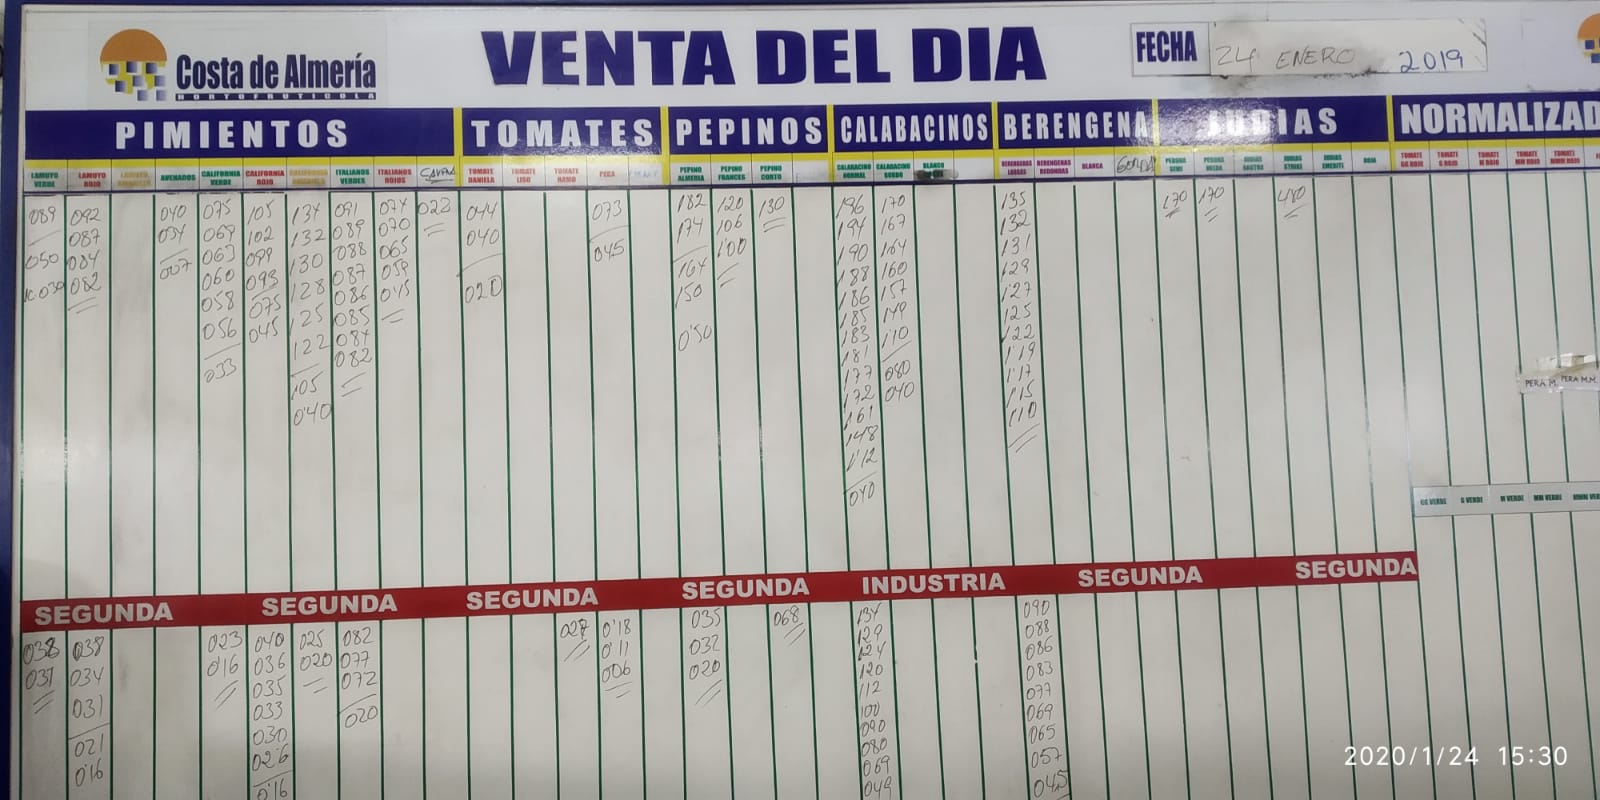 Costa de Almería
HORTOFRUTICOLA
VENTA DEL DIA
FECHA
24 ENERO 2019
PIMIENTOS TOMATES PEPINOS CALABACINOS BERENGENA JUDIAS NORMALIZAD
LAMUYO VERDE
LAMUYO ROJO
LAMUYO AMARILLO
ASURADOS
CALIFORNIA VERDE
CALIFORNIA ROJO
CALIFORNIA AMARILLO
ITALIANOS VERDES
ITALIANOS ROJOS
TOMATE DANIELA
TOMATE LISO
TOMATE RAMO
PERA
PEPINO ALMERIA
PEPINO FRANCES
PEPINO CORTO
CALABACINO NORMAL
CALABACINO GORDO
BLANCO
BERENGENAS LARGAS
BERENGENAS REDONDAS
BLANCA
GORDA
PERONA SEMI
PERONA HELDA
JUDIAS STRIKE
JUDIAS EMERITE
ROJA
TOMATE GG ROJO
TOMATE G ROJO
TOMATE M ROJO
TOMATE MM ROJO
TOMATE MMM ROJO
089
050
030
092
087
084
082
040
034
007
075
069
063
060
058
056
033
105
102
099
093
075
045
134
132
130
128
125
122
105
0'40
091
089
088
087
086
085
084
082
074
070
065
059
045
022
044
040
020
073
045
182
174
164
150
0'50
120
106
1'00
130
196
194
190
188
186
185
183
181
177
172
161
148
1'12
040
170
167
164
160
157
149
1'10
080
040
135
132
131
129
127
125
122
1'19
1'17
1'15
110
170
170
480
PERA M.
PERA M.M.
GG VERDE
G VERDE
M VERDE
MM VERDE
MMM VER
SEGUNDA SEGUNDA SEGUNDA SEGUNDA INDUSTRIA SEGUNDA SEGUNDA
038
037
038
034
031
021
0'16
023
0'16
040
036
035
033
030
026
0'16
025
020
082
077
072
020
027
0'18
0'11
006
035
032
020
068
134
129
124
120
112
100
090
080
069
049
090
088
086
083
077
069
065
057
045
2020/1/24 15:30